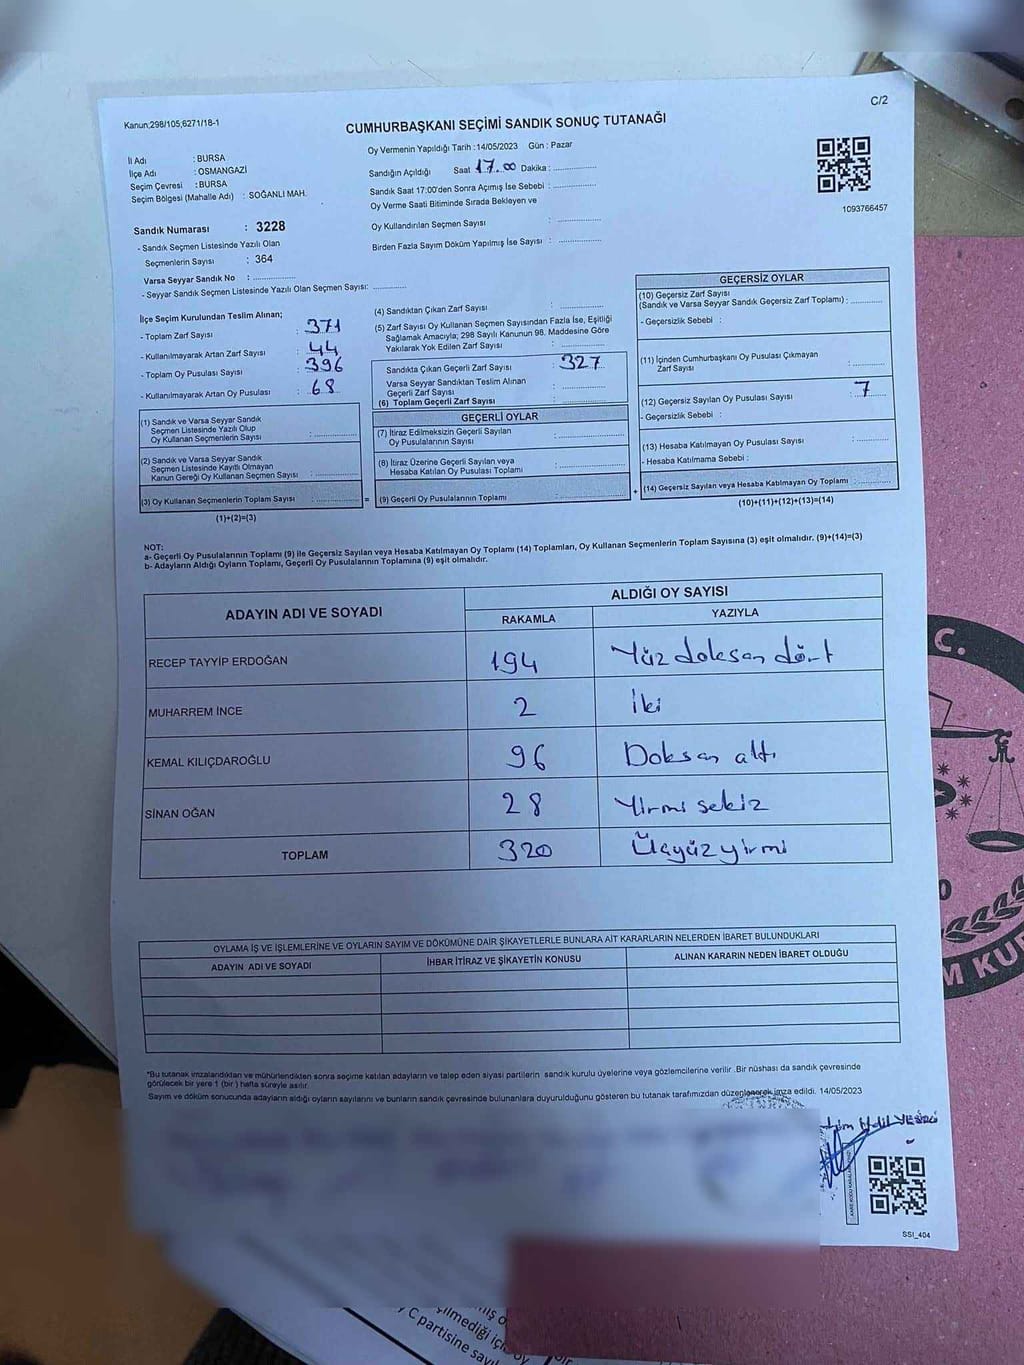 C/2
Kanun;298/105,6271/18-1
CUMHURBAŞKANI SEÇİMİ SANDIK SONUÇ TUTANAĞI
İl Adı : BURSA
İlçe Adı : OSMANGAZİ
Seçim Çevresi : BURSA
Seçim Bölgesi (Mahalle Adı) : SOĞANLI MAH.
Oy Vermenin Yapıldığı Tarih : 14/05/2023 Gün : Pazar
Sandığın Açıldığı Saat 17.00 Dakika : ..............
Sandık Saat 17:00'den Sonra Açımış İse Sebebi : ..............
Oy Verme Saati Bitiminde Sırada Bekleyen ve
Oy Kullandırılan Seçmen Sayısı : ..............
Birden Fazla Sayım Döküm Yapılmış İse Sayısı : ..............
1093766457
Sandık Numarası : 3228
- Sandık Seçmen Listesinde Yazılı Olan
Seçmenlerin Sayısı : 364
Varsa Seyyar Sandık No : ..............
- Seyyar Sandık Seçmen Listesinde Yazılı Olan Seçmen Sayısı: ..............
İlçe Seçim Kurulundan Teslim Alınan;
- Toplam Zarf Sayısı : 371
- Kullanılmayarak Artan Zarf Sayısı : 44
- Toplam Oy Pusulası Sayısı : 396
- Kullanılmayarak Artan Oy Pusulası : 68
(1) Sandık ve Varsa Seyyar Sandık
Seçmen Listesinde Yazılı Olup
Oy Kullanan Seçmenlerin Sayısı : ..............
(2) Sandık ve Varsa Seyyar Sandık
Seçmen Listesinde Kayıtlı Olmayan
Kanun Gereği Oy Kullanan Seçmen Sayısı : ..............
(3) Oy Kullanan Seçmenlerin Toplam Sayısı : ..............
(1)+(2)=(3)
(4) Sandıktan Çıkan Zarf Sayısı : ..............
(5) Zarf Sayısı Oy Kullanan Seçmen Sayısından Fazla İse, Eşitliği
Sağlamak Amacıyla; 298 Sayılı Kanunun 98. Maddesine Göre
Yakılarak Yok Edilen Zarf Sayısı : ..............
Sandıkta Çıkan Geçerli Zarf Sayısı : 327
Varsa Seyyar Sandıktan Teslim Alınan
Geçerli Zarf Sayısı : ..............
(6) Toplam Geçerli Zarf Sayısı : ..............
GEÇERLİ OYLAR
(7) İtiraz Edilmeksizin Geçerli Sayılan
Oy Pusulalarının Sayısı : ..............
(8) İtiraz Üzerine Geçerli Sayılan veya
Hesaba Katılan Oy Pusulası Toplamı : ..............
= (9) Geçerli Oy Pusulalarının Toplamı : ..............
GEÇERSİZ OYLAR
(10) Geçersiz Zarf Sayısı
(Sandık ve Varsa Seyyar Sandık Geçersiz Zarf Toplamı) : ..............
- Geçersizlik Sebebi :
(11) İçinden Cumhurbaşkanı Oy Pusulası Çıkmayan
Zarf Sayısı : ..............
(12) Geçersiz Sayılan Oy Pusulası Sayısı : 7
- Geçersizlik Sebebi :
(13) Hesaba Katılmayan Oy Pusulası Sayısı : ..............
- Hesaba Katılmama Sebebi :
+ (14) Geçersiz Sayılan veya Hesaba Katılmayan Oy Toplamı : ..............
(10)+(11)+(12)+(13)=(14)
NOT:
a- Geçerli Oy Pusulalarının Toplamı (9) ile Geçersiz Sayılan veya Hesaba Katılmayan Oy Toplamı (14) Toplamları, Oy Kullanan Seçmenlerin Toplam Sayısına (3) eşit olmalıdır. (9)+(14)=(3)
b- Adayların Aldığı Oyların Toplamı, Geçerli Oy Pusulalarının Toplamına (9) eşit olmalıdır.
ADAYIN ADI VE SOYADI ALDIĞI OY SAYISI
RAKAMLA YAZIYLA
RECEP TAYYİP ERDOĞAN 194 Yüz doksan dört
MUHARREM İNCE 2 İki
KEMAL KILIÇDAROĞLU 96 Doksan altı
SİNAN OĞAN 28 Yirmi sekiz
TOPLAM 320 Üçyüz yirmi
OYLAMA İŞ VE İŞLEMLERİNE VE OYLARIN SAYIM VE DÖKÜMÜNE DAİR ŞİKAYETLERLE BUNLARA AİT KARARLARIN NELERDEN İBARET BULUNDUKLARI
ADAYIN ADI VE SOYADI İHBAR İTİRAZ VE ŞİKAYETİN KONUSU ALINAN KARARIN NEDEN İBARET OLDUĞU
*Bu tutanak imzalandıktan ve mühürlendikten sonra seçime katılan adayların ve talep eden siyasi partilerin sandık kurulu üyelerine veya gözlemcilerine verilir .Bir nüshası da sandık çevresinde
görülecek bir yere 1 (bir ) hafta süreyle asılır.
Sayım ve döküm sonucunda adayların aldığı oyların sayılarını ve bunların sandık çevresinde bulunanlara duyurulduğunu gösteren bu tutanak tarafımızdan düzenlenerek imza edildi. 14/05/2023
SSI_404
C.
M KU
C partisine